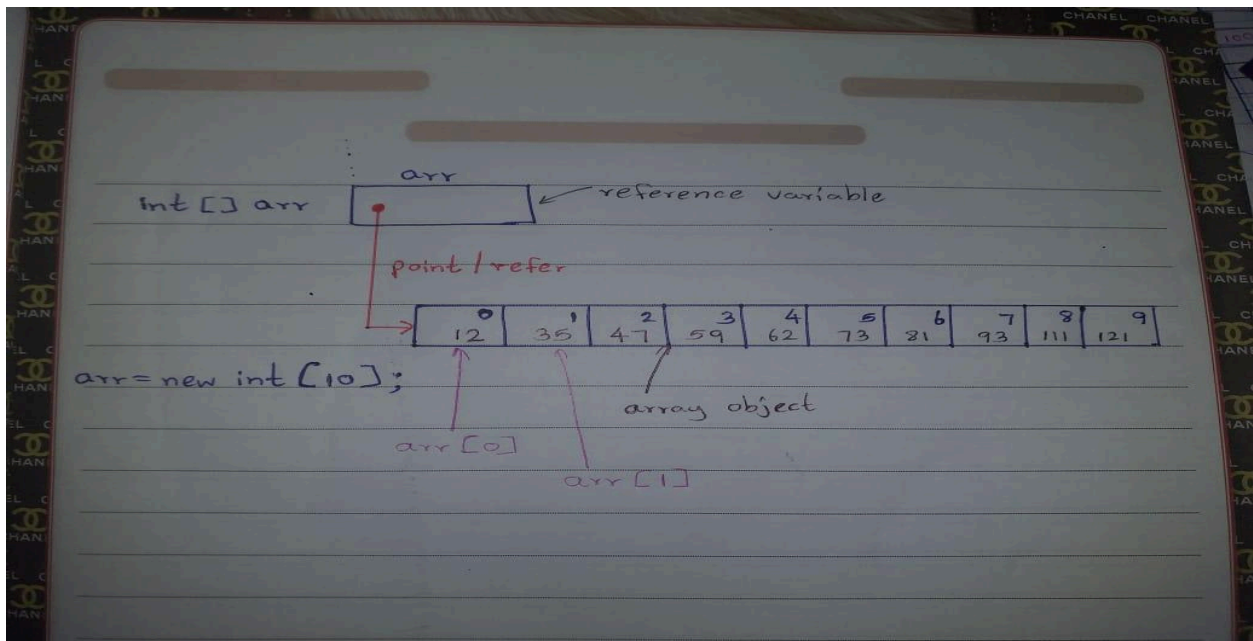 CHANEL CHANEL
arr
int [] arr
reference variable
point / refer
0 1 2 3 4 5 6 7 8 9
12 35 47 59 62 73 81 93 111 121
arr = new int [10];
array object
arr [0]
arr [1]